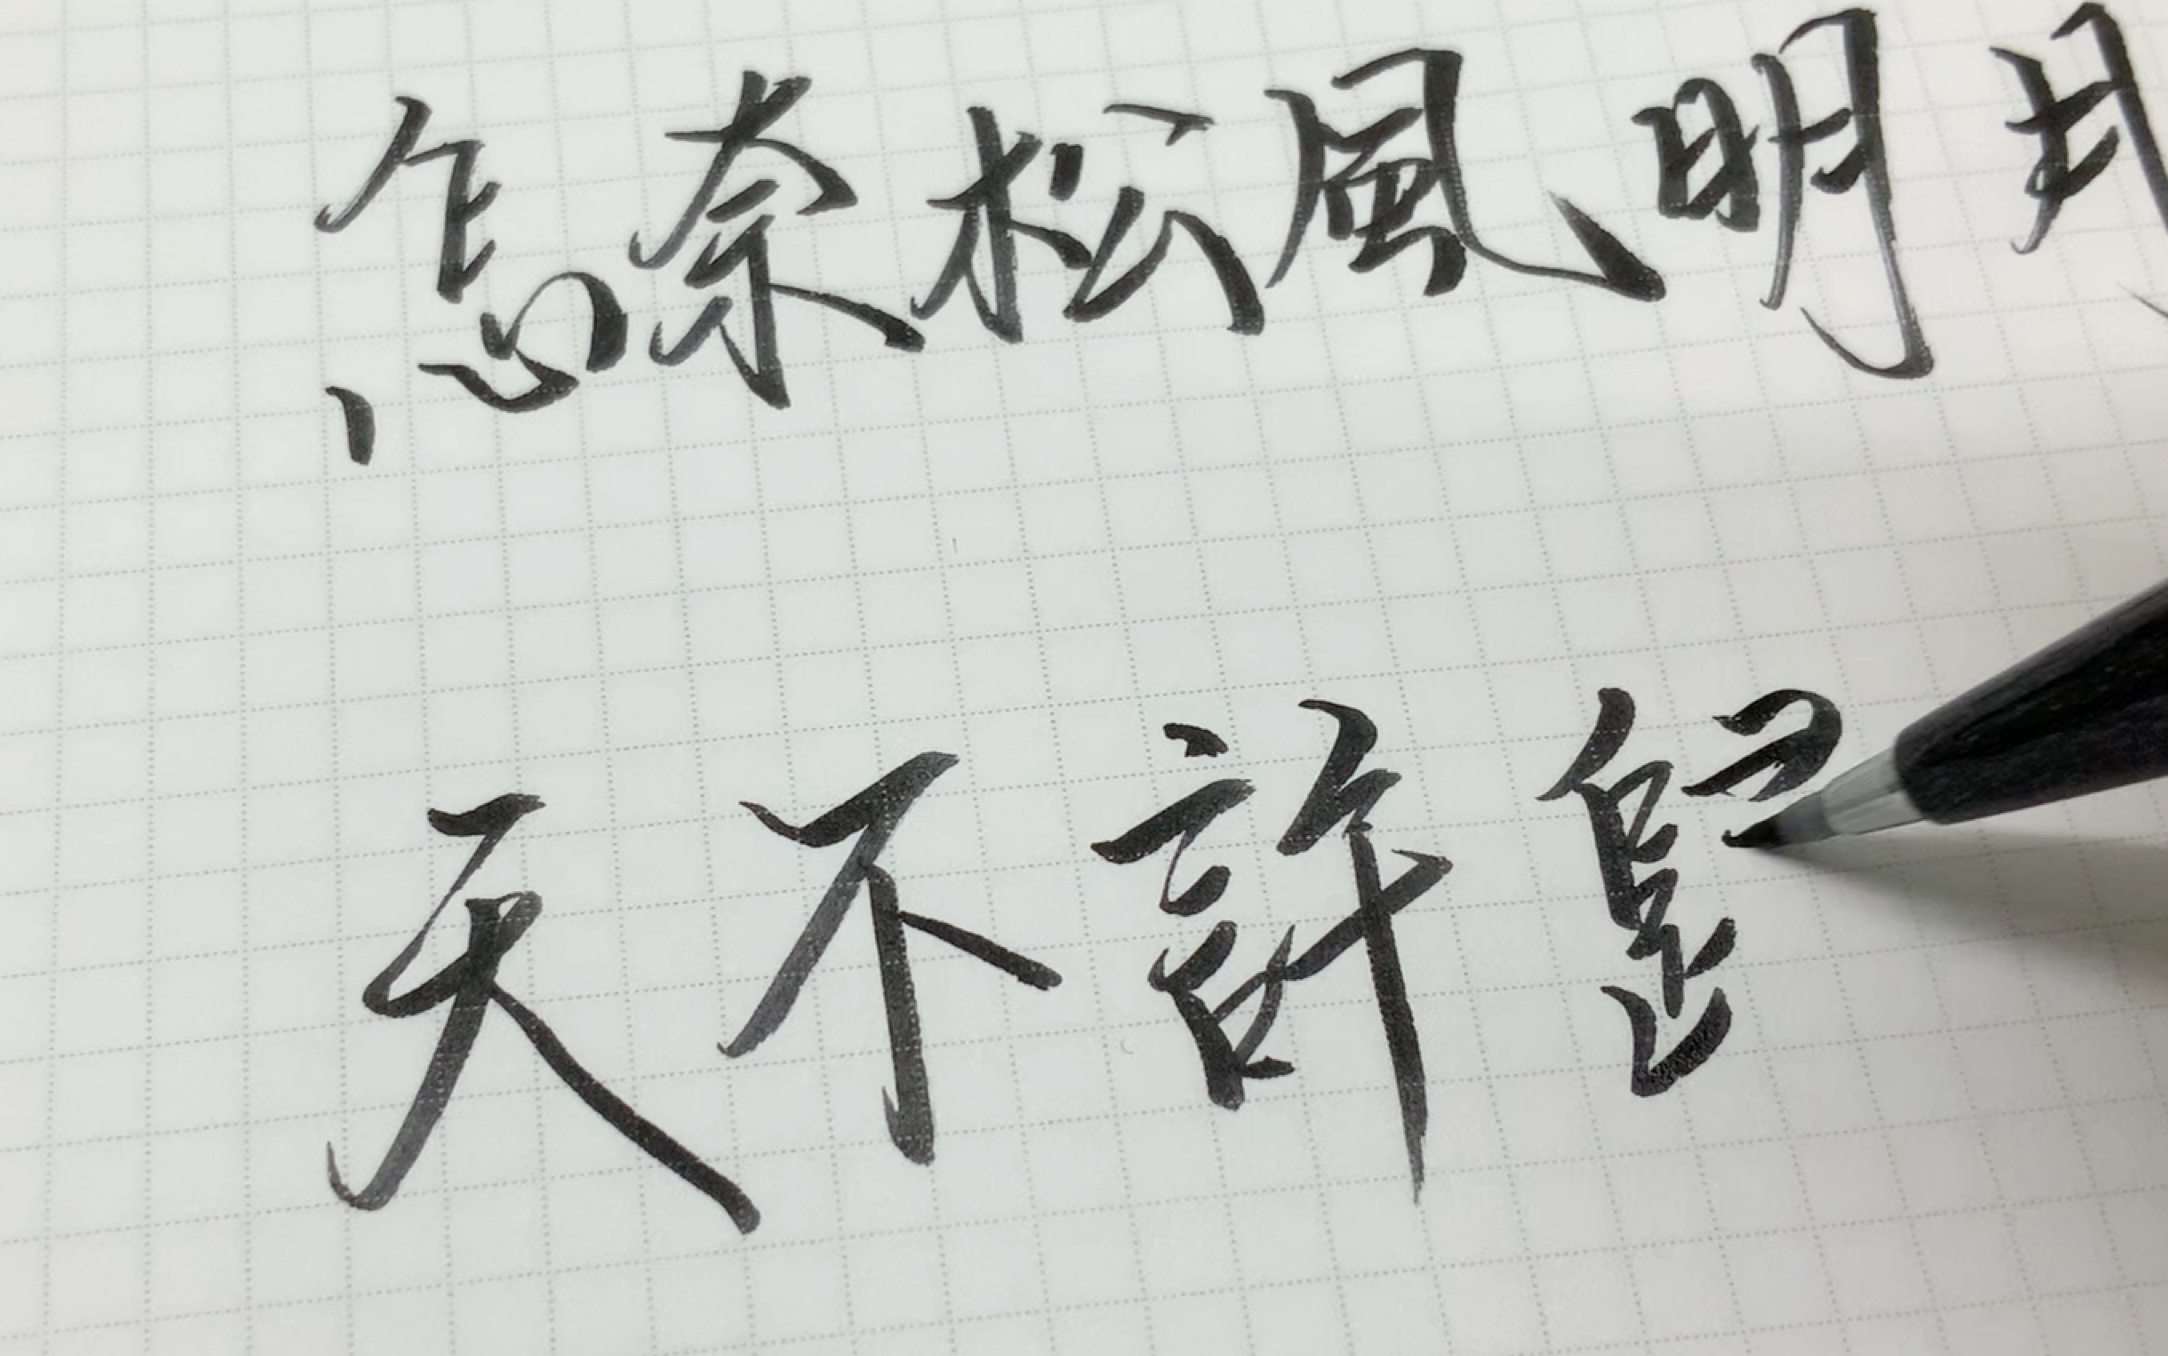 怎奈松風明月
天不許